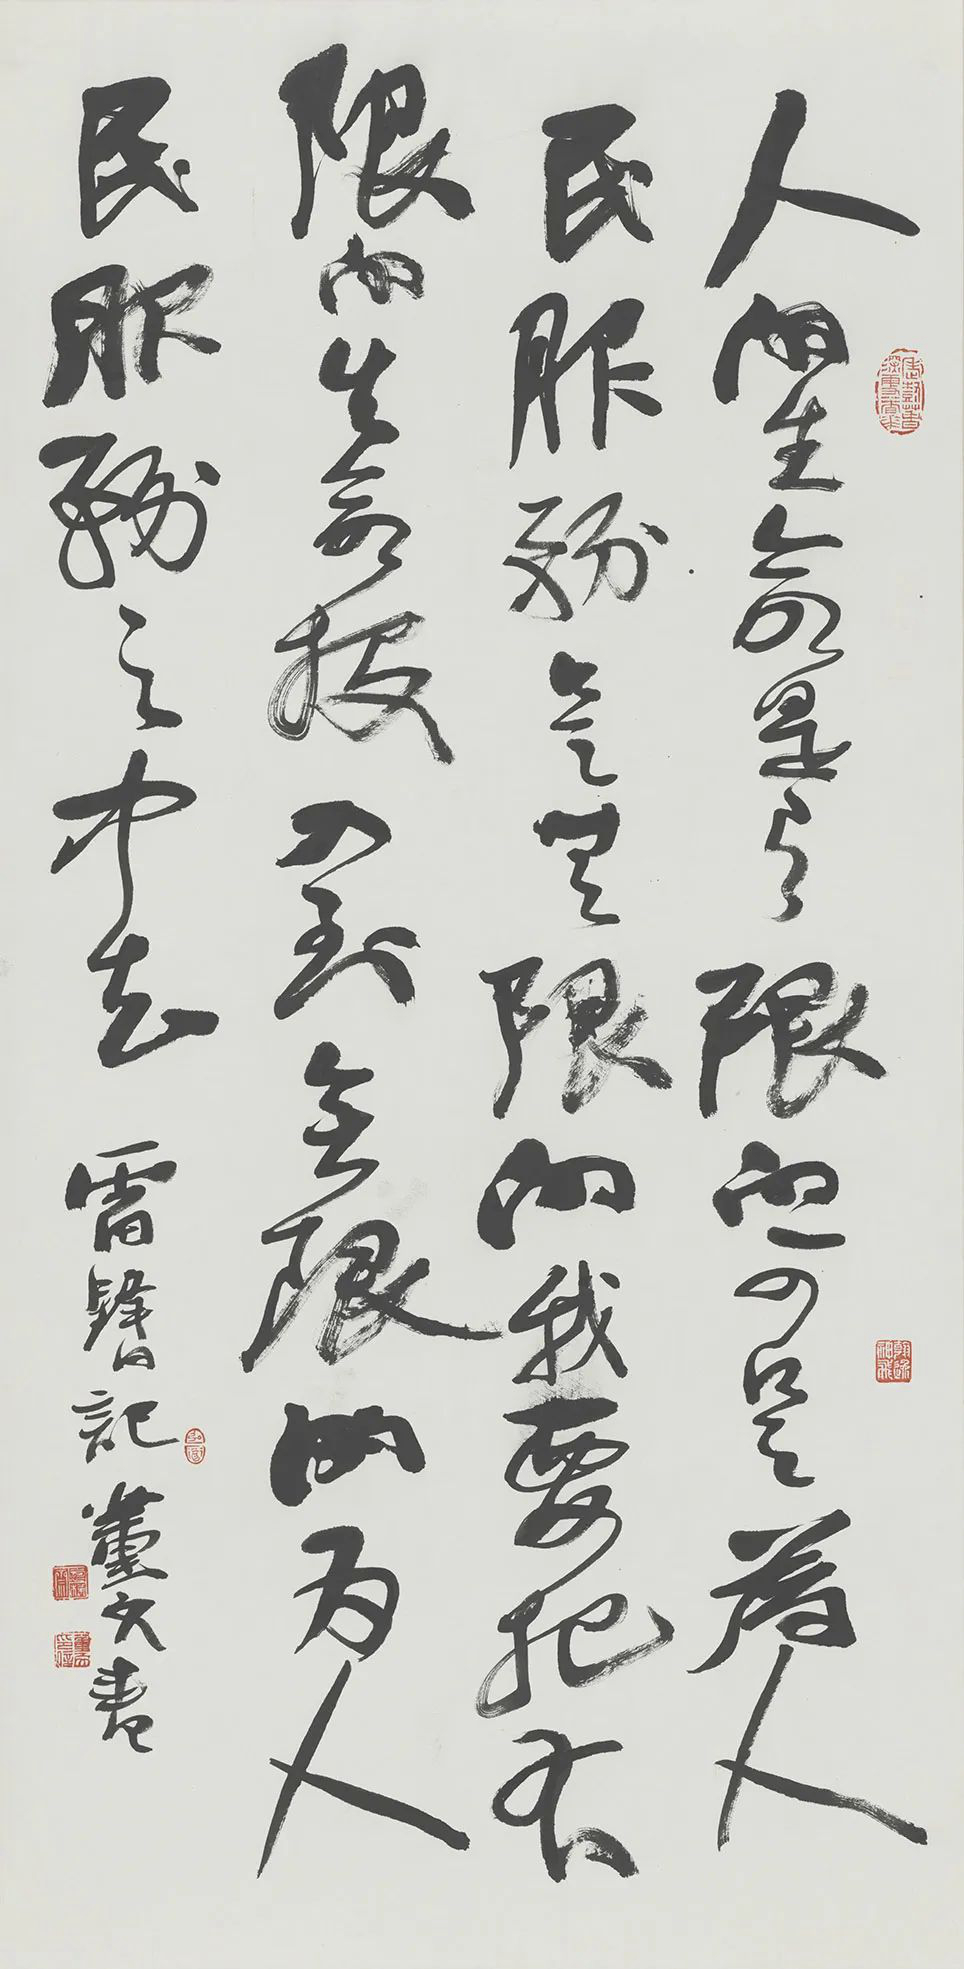 人的生命是有限的可是為人
民服務是無限的我要把有
限的生命投入到無限的为人
民服務之中去
雷鋒日記 董文書